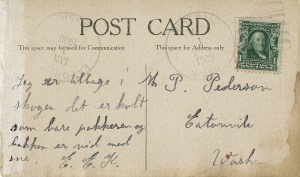 POST CARD
This space may be used for Communication
This space for Address only
Jeg er tilbage i
skogen det er kolt
som bare pokkeren og
bakken er vid med
sne. E. E. K.
M. P. Pederson
Eatonville
Wash